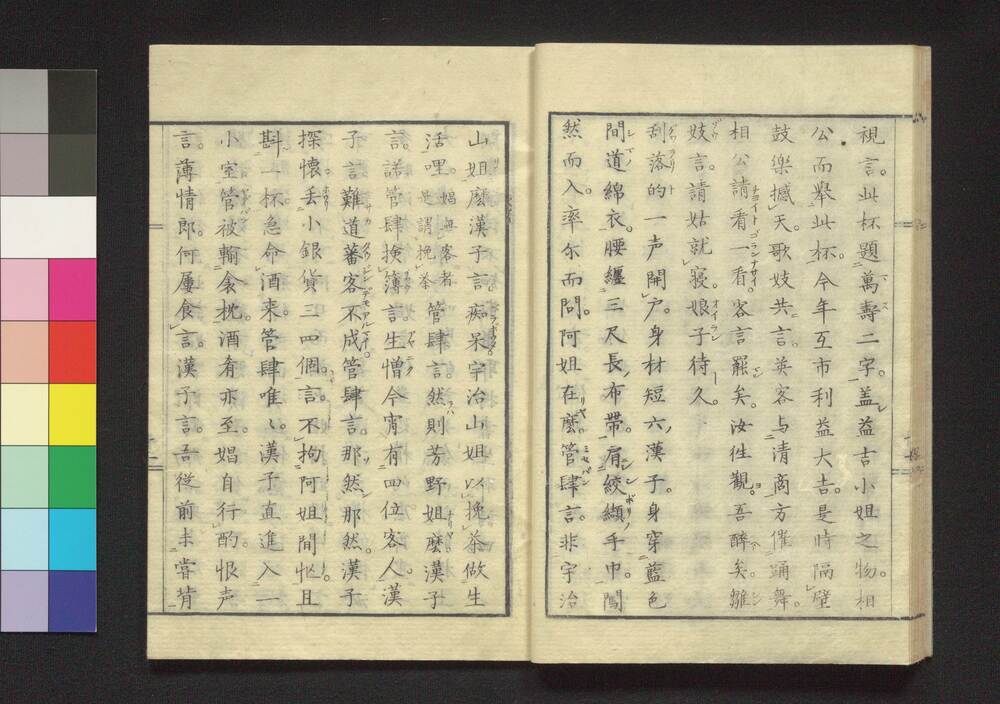 視言。此杯題萬壽二字。蓋益吉小姐之物。相
公而舉此杯。今年互市利益大吉。是時隔壁
鼓樂撼天。歌妓共言。英客与清商方催踊舞。
相公請看一看。客言罷矣。汝性觀。吾醉矣。雛
妓言。請姑就寢。娘子待久。
刮落的一声開戸。身材短六漢子。身穿藍色
間道綿衣。腰纏三尺長布帶。肩絞纈手巾。闖
然而入。率尓而問。阿姐在麼。管肆言。非宇治
山姐麼。漢子言。痴呆宇治山姐以挽茶做生
活哩。娼無客者是謂挽茶管肆言。然則芳野姐麼。漢子
言。諾管肆検簿言。生憎今宵有四位客人。漢
子言。難道蕃客不成。管肆言。那然那然。漢子
探懷丢小銀貨三四個。言。不拘阿姐間忙。且
斟一杯。急命酒來。管肆唯〻。漢子直進入一
小室。管被輸衾枕。酒肴亦至。娼自行酌。恨声
言。薄情郎。何屢食言。漢子言。吾從前未嘗背